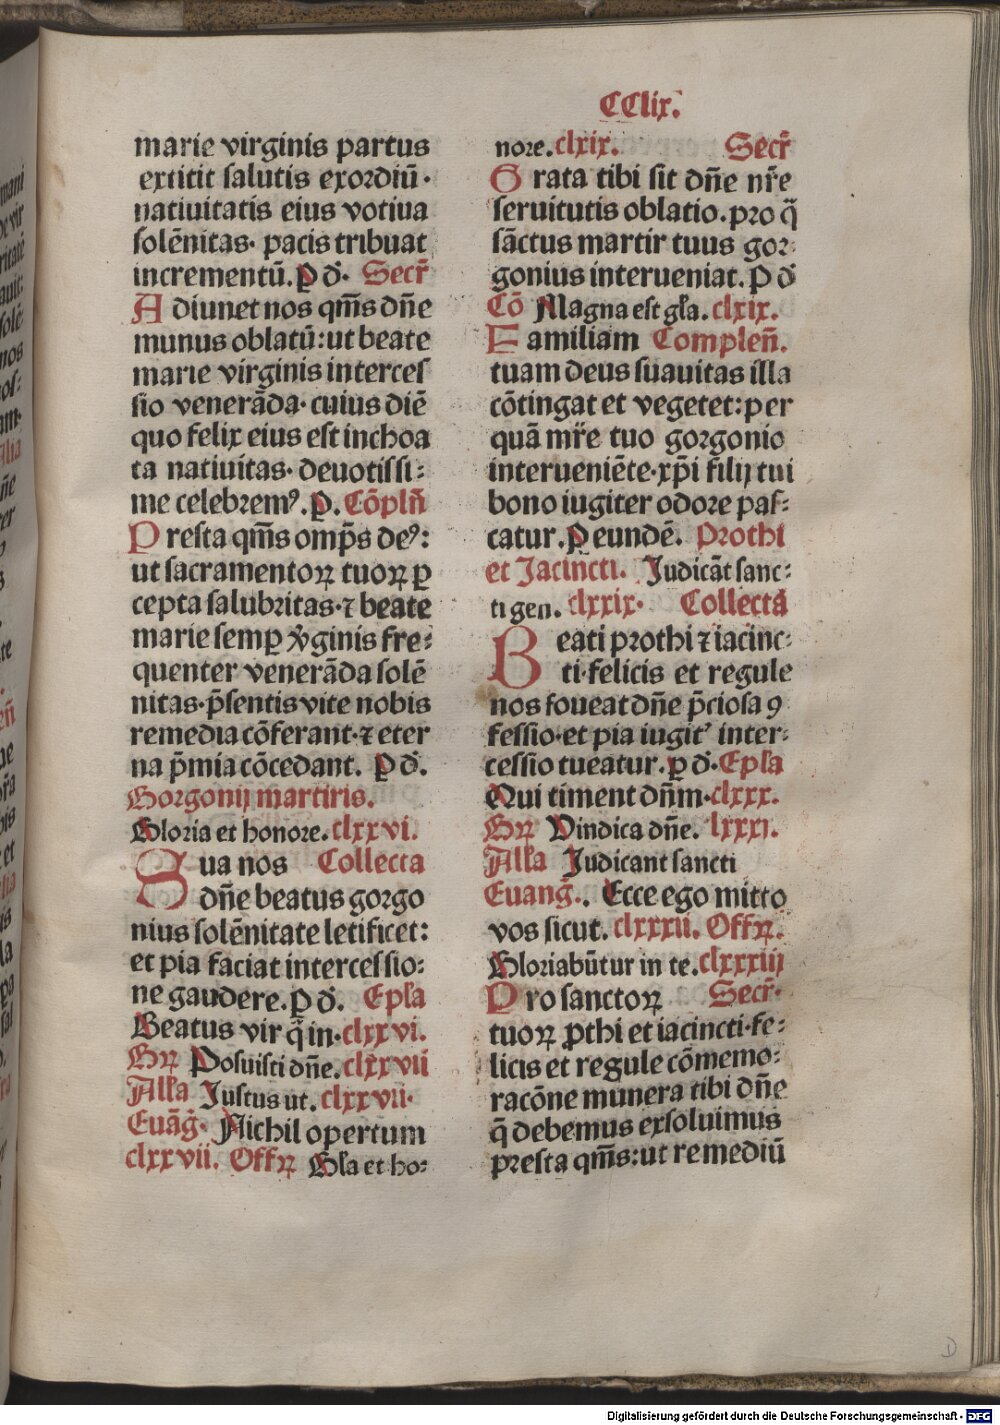 CClix.
marie virginis partus
extitit salutis exordiū·
natiuitatis eius votiua
solēnitas· pacis tribuat
incrementū. P d̄· Secr̄
Adiuuet nos qm̄s dn̄e
munus oblatū: ut beate
marie virginis interces
sio venerāda· cuius diē
quo felix eius est inchoa
ta natiuitas· deuotissi:
me celebremꝰ. P. Cōpln̄
Presta qm̄s omp̄s deꝰ:
ut sacramentoꝝ tuoꝝ ꝑ
cepta salubritas· ⁊ beate
marie semꝑ v̓ginis fre:
quenter venerāda solē
nitas· p̄sentis vite nobis
remedia cōferant· ⁊ eter
na p̄mia cōcedant. P d̄.
Gorgonij martiris.
Gloria et honore. clxxvi.
Sua nos Collecta
dn̄e beatus gorgo
nius solēnitate letificet:
et pia faciat intercessio:
ne gaudere. P d̄. Epl̄a
Beatus vir q̄ in· clxxvi.
Gꝝ Posuisti dn̄e. clxxvii
All̄a Justus ut. clxxvii·
Euāḡ· Nichil opertum
clxxvii. Offꝝ Gl̄a et ho:
nore. clxix. Secr̄
Grata tibi sit dn̄e nr̄e
seruitutis oblatio. pro q̄
sāctus martir tuus gor:
gonius interueniat. P d̄
Cō Magna est gl̄a. clxix.
Familiam Complen̄.
tuam deus suauitas illa
cōtingat et vegetet: per
quā mr̄e tuo gorgonio
interueniēte· xp̄i filij tui
bono iugiter odore pas:
catur. P eundē. Prothi
et Jacincti. Judicāt sanc:
ti gen. clxxix· Collecta
Beati prothi ⁊ iacinc:
ti· felicis et regule
nos foueat dn̄e p̄ciosa ꝯ
fessio· et pia iugit̓ inter:
cessio tueatur. P d̄· Epl̄a
Qui timent dn̄m· clxxx.
Gꝝ Vindica dn̄e. lxxxi.
All̄a Judicant sancti
Euanḡ.. Ecce ego mitto
vos sicut. clxxxii. Offꝝ.
Gloriabūtur in te. clxxxiij
Pro sanctoꝝ Secr̄·
tuoꝝ ꝓthi et iacincti· fe:
licis et regule cōmemo:
racōne munera tibi dn̄e
q̄ debemus exsoluimus
presta qm̄s: ut remediū
D
Digitalisierung gefördert durch die Deutsche Forschungsgemeinschaft - DFG